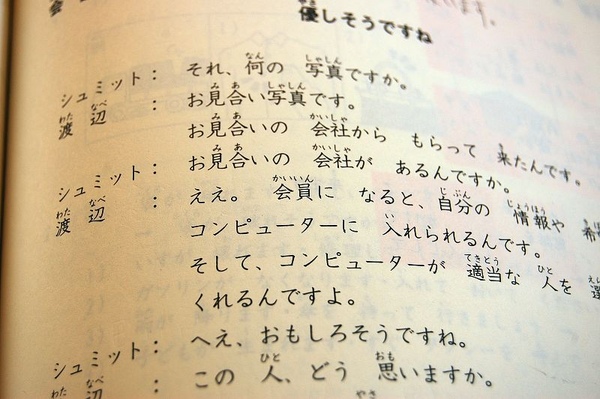 会 優しそうですね
シュミット： それ、何の 写真ですか。
渡辺： お見合い写真です。
お見合いの 会社から もらって 来たんです。
シュミット： お見合いの 会社が あるんですか。
渡辺： ええ。 会員に なると、自分の 情報や 希
コンピューターに 入れられるんです。
そして、コンピューターが 適当な 人を 選
くれるんですよ。
シュミット： へえ、おもしろそうですね。
渡辺： この 人、どう 思いますか。